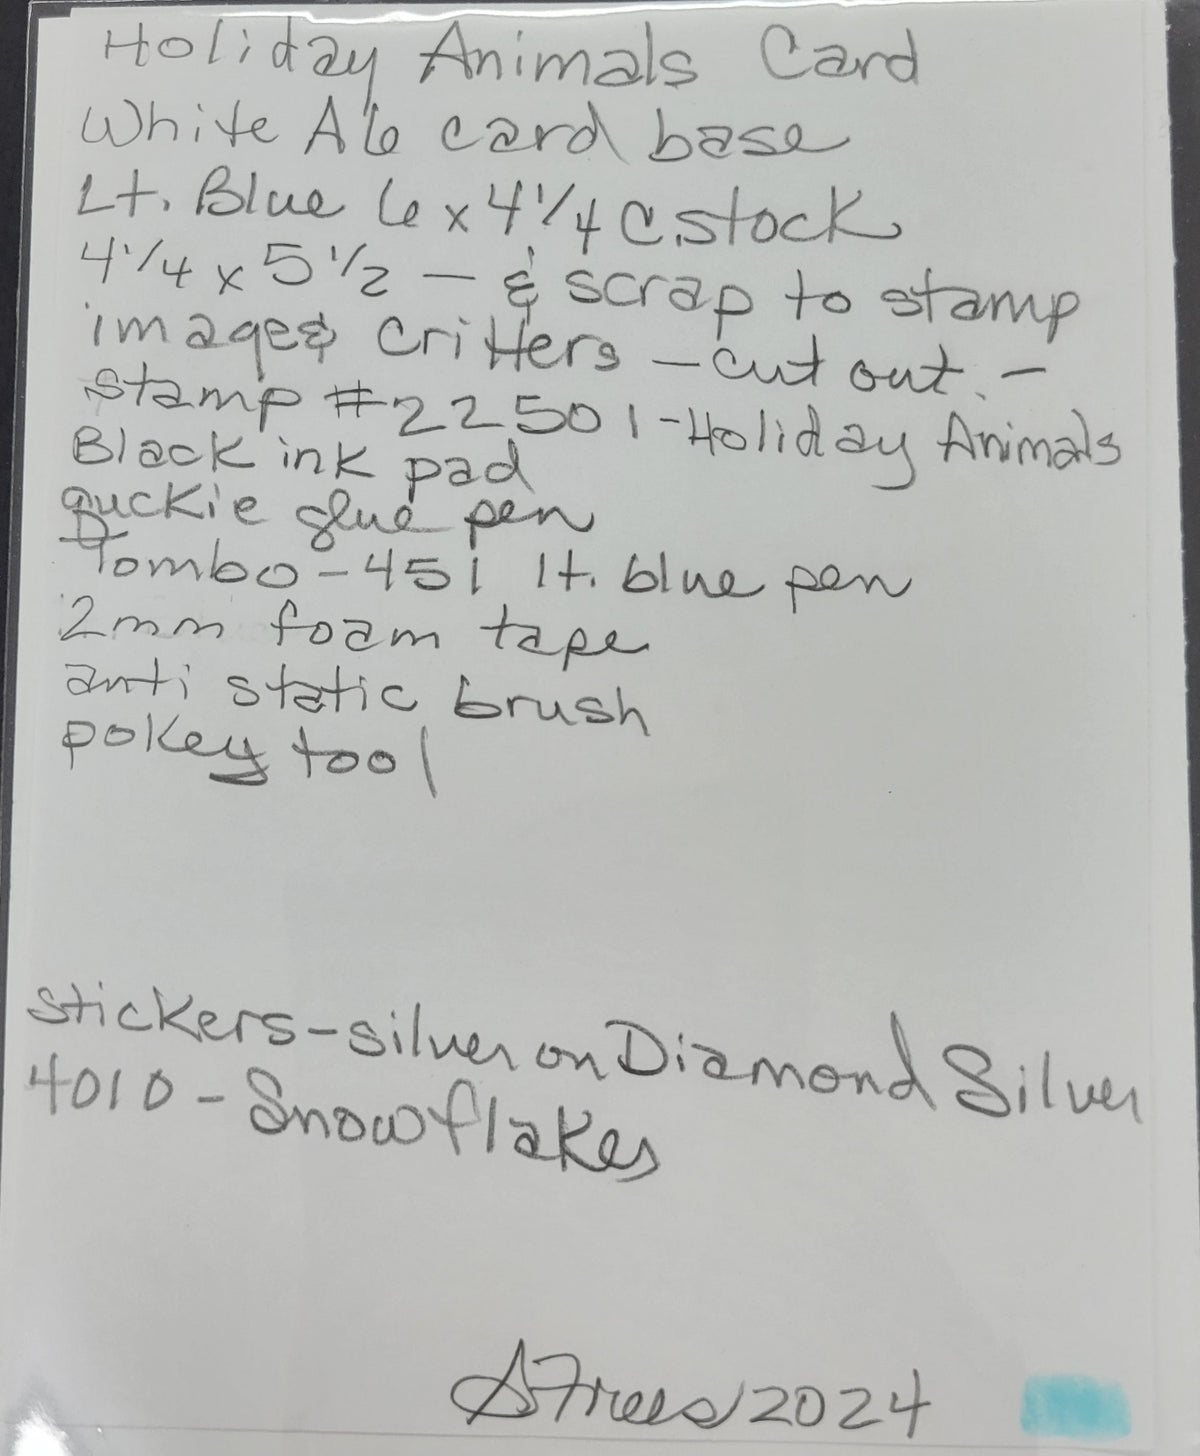 Holiday Animals Card
White A6 card base
Lt. Blue 6 x 4 1/4 C.stock
4 1/4 x 5 1/2 — & scrap to stamp
image& critters — cut out. —
stamp #22501-Holiday Animals
Black ink pad
quckie glue pen
Tombo-451 lt. blue pen
2mm foam tape
anti static brush
pokey tool
stickers-silver on Diamond Silver
4010 - Snowflakes
2024